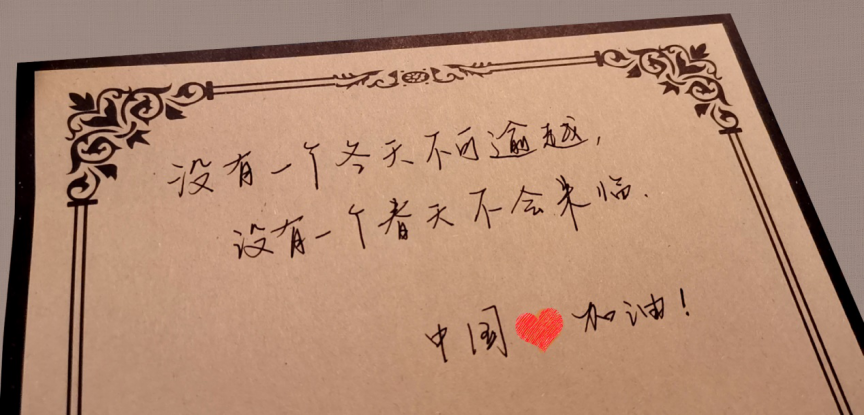 没有一个冬天不可逾越，
没有一个春天不会来临.
中国❤加油！